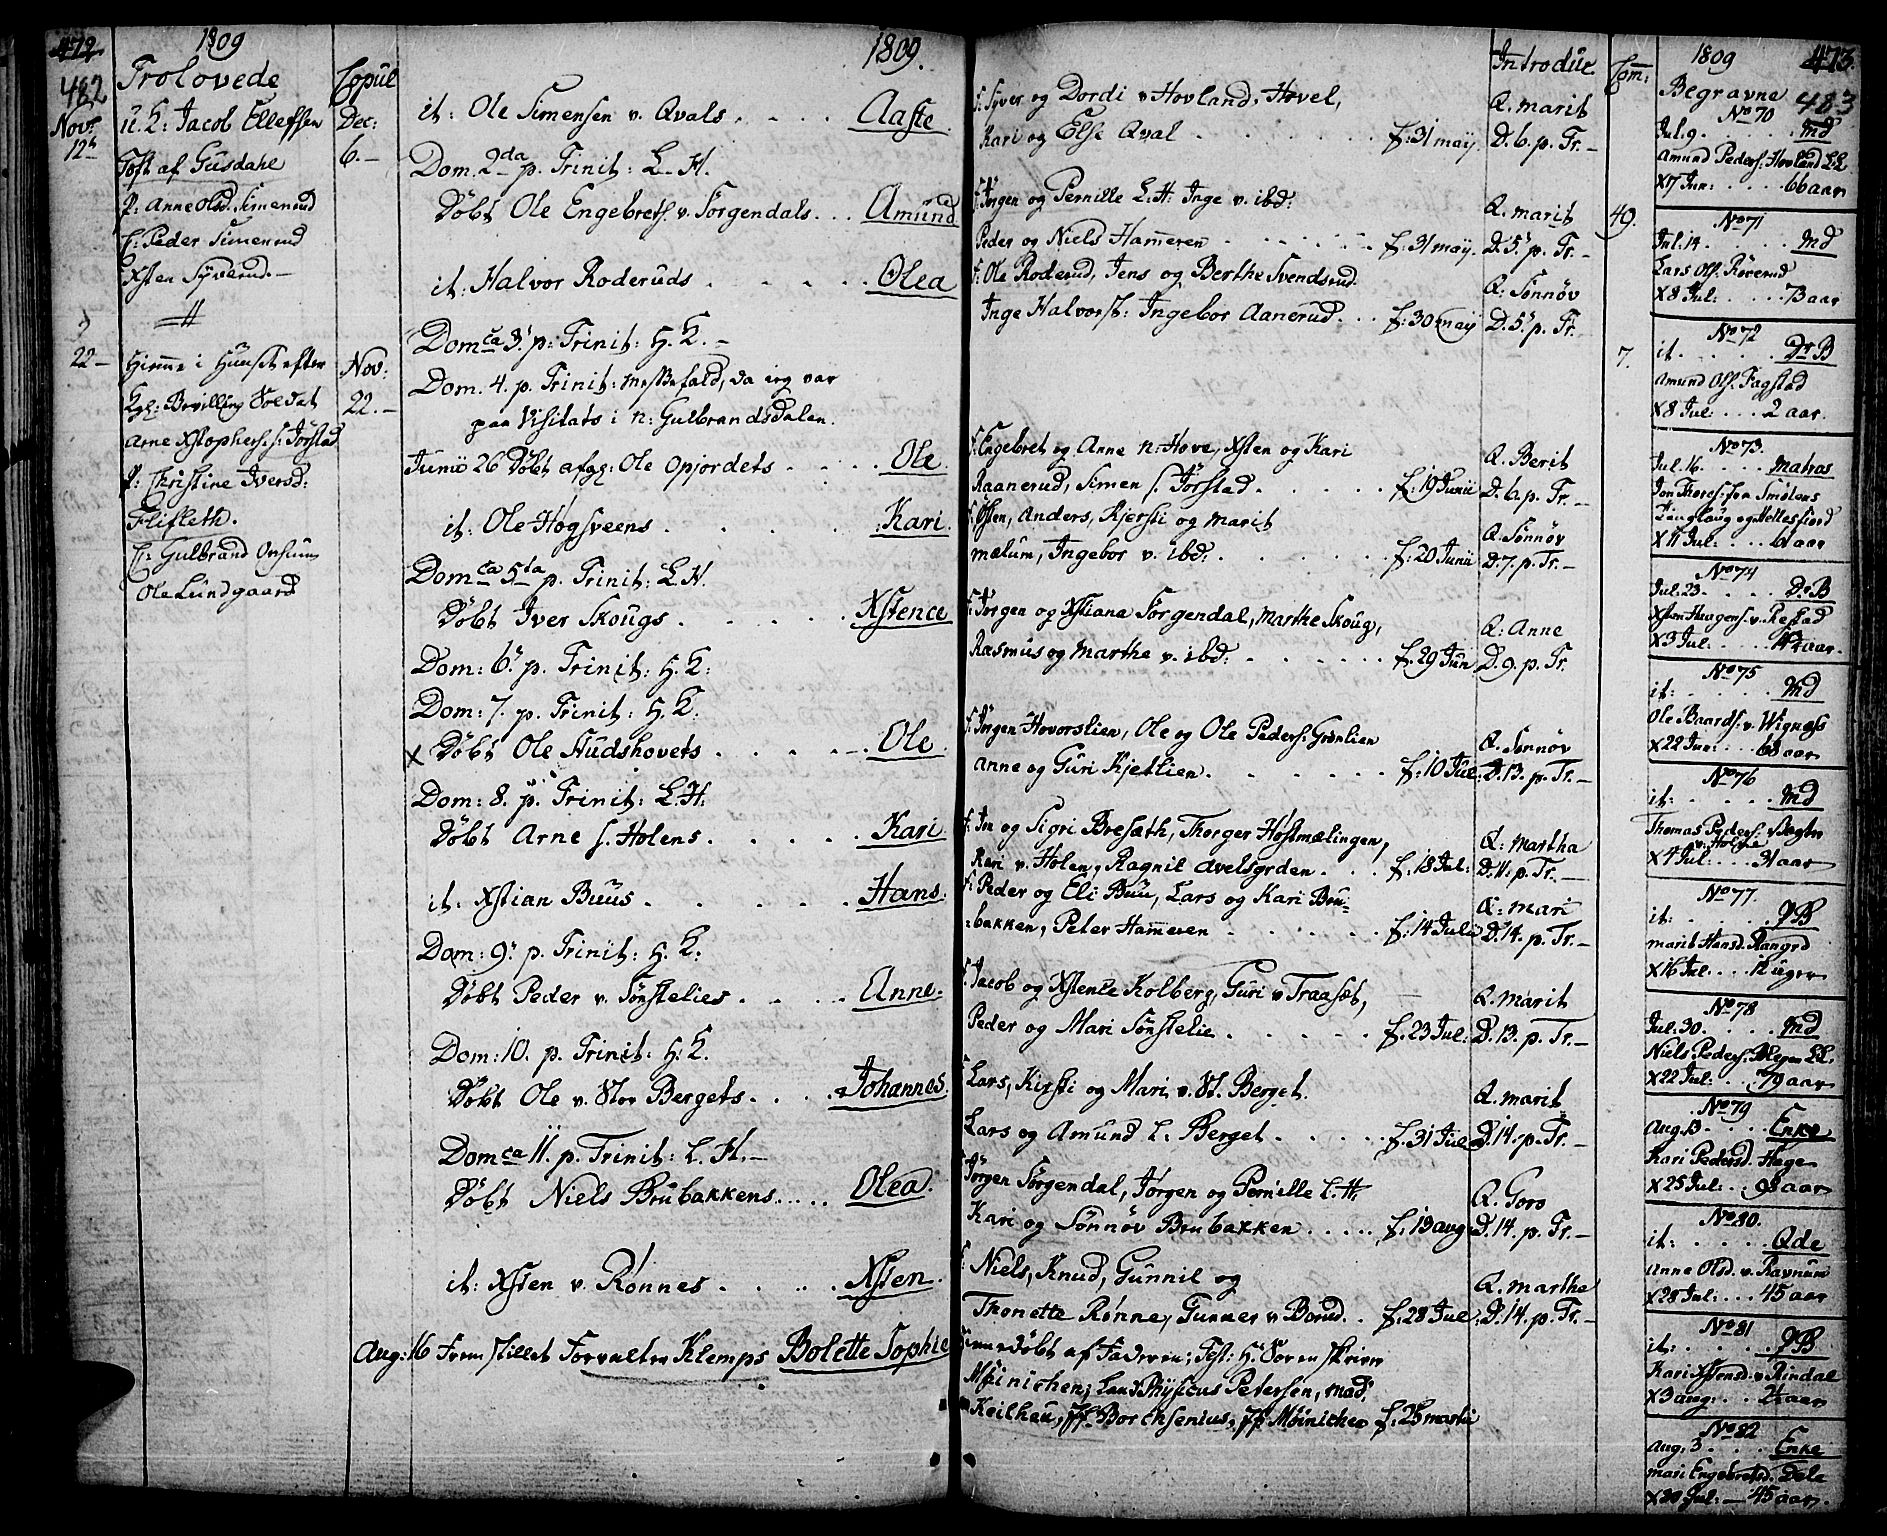 472
482
1809
Trolovede
Copul
Nov:
12te
u. K: Jacob Ellefsen
Toft af Gusdahl
P: Anne Olsd. Simenrud
C: Peder Simenrud
Xsten Syverud.-
Dec:
6.-
22-
Hieme i Huuset efter
Kgl: Bevilling Soldat
Arne Xstophers: s: Jorstad
P: Christine Iversd:
Flifleth.
C: Gulbrand Onsum
Ole Lundgaard
Nov:
22.-
1809.
it: Ole Simensen v. Qvals . . . . Aaste.
Dom. 2da p. Trinit: L. H.
Döbt Ole Engebrets. v. Sorgendals . . . Amund
it: Halvor Roderuds . . . . . Olea
Domca 3. p: Trinit: H. K. -
Dom. 4. p. Trinit: Messefald, da ieg var
paa Visitats i n: Gulbrandsdalen.
Junii 26 Döbt afgg: Ole Opjordets . . . . Ole
it: Ole Hogsveens . . . . . Kari.
Domca 5ta p. Trinit: L. H.
Döbt Iver Skougs . . . . . Xstence
Dom: 6. p. Trinit: H. K:
Dom: 7. p. Trinit: H. K.
X Döbt Ole Studshovets . . . . . Ole.
Dom: 8. p. Trinit: L. H.
Döbt Arne s. Holens . . . . . Kari
it: Xstian Buus . . . . . Hans.
Dom: 9. p. Trinit: H. K:
Döbt Peder v. Sønstelies . . . . Anne.
Dom: 10. p. Trinit: H. K.
Döbt Ole v. Stor Bergets . . . . Johannes.
Domca 11. p. Trinit: L. H. -
Döbt Niels Brubakkens . . . . Olea.
it: Xsten v. Rønnes . . . . . Xsten.
Aug: 16 Fremstillet Forvalter Klemps Bolette Sophie
F: Syver og Dordi v Hovland, Hovel,
Kari og Else Qval . . . . . f: 31 may.
F: Jörgen og Pernille L. H. Inge v. ibd.
Peder og Niels Hameren . . . . . f: 31 may.
F: Ole Roderud, Jens og Berthe Svendsrud
Inge Halvorst: Ingebor Aanerud. . . f: 30 may
F: Engebret og Anne n: Hove, Xsten og Kari
Raanerud, Simen s. Jörstad . . . . f: 19 Junii
F: Östen, Anders, Kjersti og Marit
Mælum, Ingebor v. ibd. . . . . f: 20 Junii
F: Jörgen og Xstiana Sörgendal, Marthe Skoug,
Rasmus og Marthe v. ibd: . . . . . f: 29 Jun
F: Jörgen Hovorslien, Ole og Ole Peders: Grønlien
Anne og Guri Kjetlien . . . . . f: 10 Jul:
F: Jon og Sigri Bresæth, Thorger Høstmælingen,
Kari v. Holen, Ragnil Avelsgrden . . . f: 18 Jul:
F: Peder og Eli Buu, Lars og Kari Bru-
bakken, Peter Hameren . . . . . f: 14 Julii
F: Jacob og Xstense Kolberg, Guri v Traaset,
Peder og Mari Sønstelie . . . . . f: 23 Jul:
Lars, Kirsti og Mari v. St. Berget.
Lars og Amund L. Berget . . . . . f: 31 Jul:
F: Jörgen Sörgendal, Jörgen og Pernille L. H.
Kari og Sønnøv Brubakken . . . . . f: 13 aug:
F: Niels, Knud, Gunnil og
Thonette Rønne, Gunner v Borud. . f: 28 Jul:
Hiemedöbt af Faderen; Test: H: Sorenskriver
Møinichen, Land Physicus Petersen, Mad:
Keilhau, Jf: Borchsenius, Jf: Møinichen f: 25 Martii
Introduc.
Q. Marit
D. 6. p. Tr.-
Q. Marit
D. 5. p. Tr.-
Q: Sønnøv
D. 5. p. Tr.-
Q. Berit
D. 6. p. Tr.-
Q: Sønnøv
D. 7. p. Tr.-
Q: Anne
D. 9. p. Tr.
Q. Sønnøv
D. 13. p. Tr.-
Q: Martha
D. 11. p. Tr.-
Q: Mari
D. 14. p. Tr.-
Q. Marit
D. 13. p. Tr.-
Q. Marit
D. 14. p. Tr.-
Q. Goro
D. 14. p. Tr.-
Q. Marthe
D. 14. p. Tr.-
Com:
49.
7.
1809
473.
483
Begravne
No 70
Jul. 9 . . . . . Md
Amund Peders: Hovland LL
X17 Jun: . . . . 66 aar
No 71
Jul. 14 . . . . . Md
Lars Ols: Röverud
X8 Jul: . . . . 73 aar
No 72
it. . . . . . Dr B
Amund Ols: Fagstad
X8 Jul: . . . 2 aar.
No 73.
Jul. 16. . . . Matros
Jon Thores: fra Smölens
X11 Jul: . . . 61 aar
No 74
Jul. 23 . . . . Dr B
Xsten Haagens: v. Restad
X3 Jul: . . . 14 aar.
No 75
it: . . . . . Md
Ole Baards: v. Wignæss
X22 Jun: . . . 68 aar
No 76
it: . . . . . Md
Thomas Peders:
v. Holme
X4 Jul: . . . 31 aar
No 77.
it: . . . . . PB
Marit Hansd. Rangrd
X16 Jul. . . . 12 uger
No 78
Jul. 30. . . . Md
Niels Peders: Blegen LL.
X22 Jul: . . . 79 aar
No 79
Aug. 13 . . . . Enke
Kari Pedersd. Hage
X25 Jul: . . 93 aar
No 80.
it: . . . . . Qde
Anne Olsd. v. Ravnum
X28 Jul: . . . 45 aar
No 81
it: . . . . . PB
Kari Xstensd. v. Rindal
X3 aug: . . . 24 aar
No 82
Aug. 3 . . . . Enke
Mari Engebretsd. Dele
X30 Jul: - 45 aar.